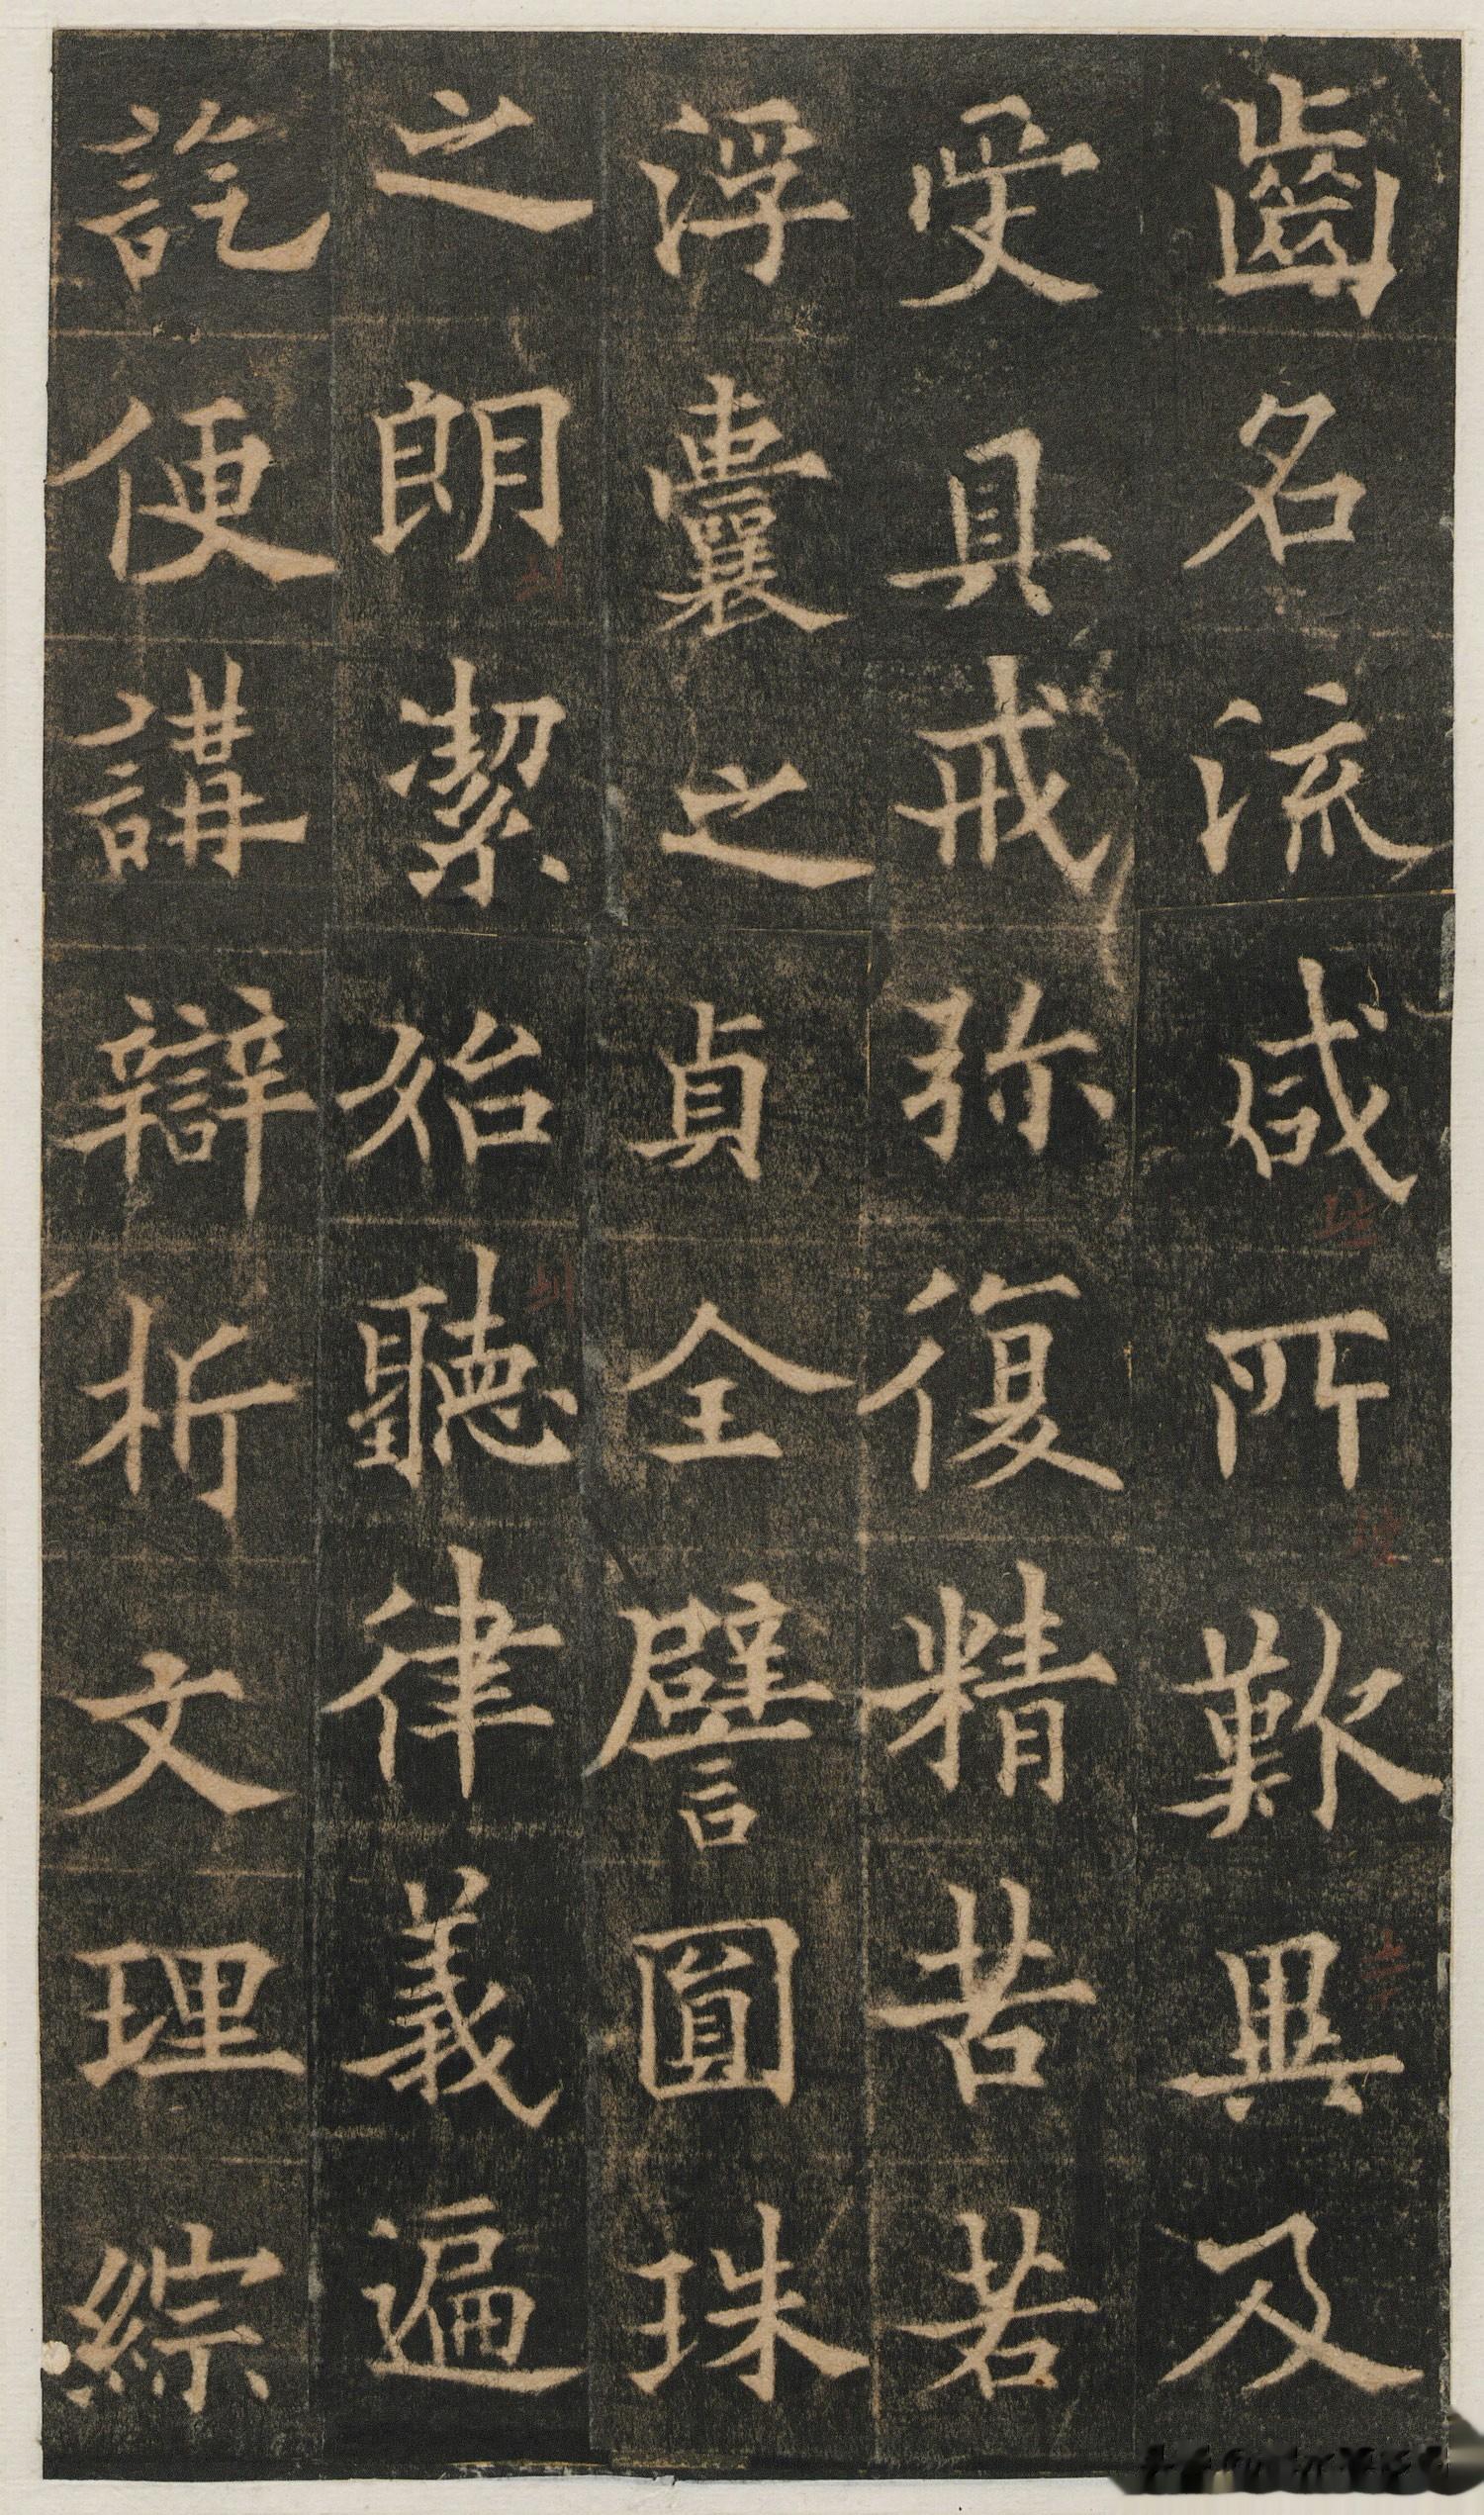 齒名流咸所歎異及
受具戒弥復精苦若
浮囊之貞全譬圓珠
之朗潔始聽律義遍
訖便講辯析文理綜